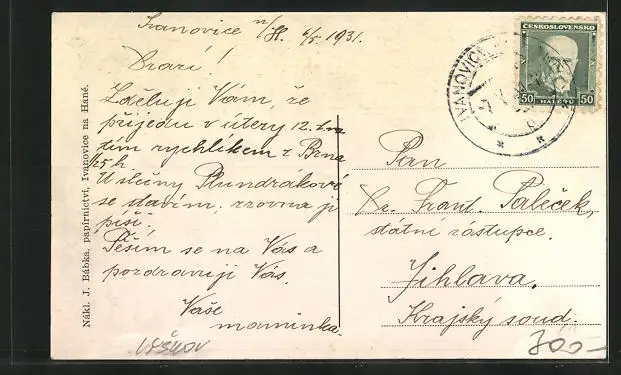 Ivanovice n/H. 6/5. 1931.
Drazí!
Zděluji Vám, že
přijedu v úterý 12. t. m.
tím rychlíkem z Brna
/25 h.
U slečny Mundrákové
se stavím, zrovna jí
píši.
Těším se na Vás a
pozdravuji Vás.
Vaše
maminka.
VYŠKOV
Nákl. J. Bábka, papírnictví, Ivanovice na Hané.
ČESKOSLOVENSKO
50 HALÉŘŮ 50
IVANOVICE
Pan
Dr. Frant. Paleček,
státní zástupce.
Jihlava.
Krajský soud.
300-